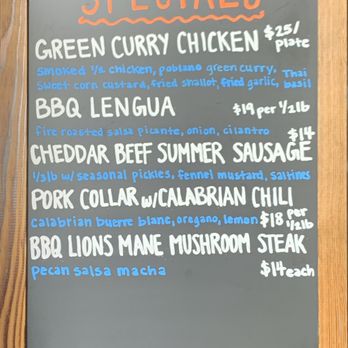 SPECIALS
GREEN CURRY CHICKEN $25/plate
smoked 1/2 chicken, poblano green curry, Thai
sweet corn custard, fried shallot, fried garlic, basil
BBQ LENGUA $19 per 1/2lb
fire roasted salsa picante, onion, cilantro $14
CHEDDAR BEEF SUMMER SAUSAGE
1/3lb w/seasonal pickles, fennel mustard, saltines
PORK COLLAR w/CALABRIAN CHILI
calabrian buerre blanc, oregano, lemon $18 per 1/2lb
BBQ LIONS MANE MUSHROOM STEAK
pecan salsa macha $14 each